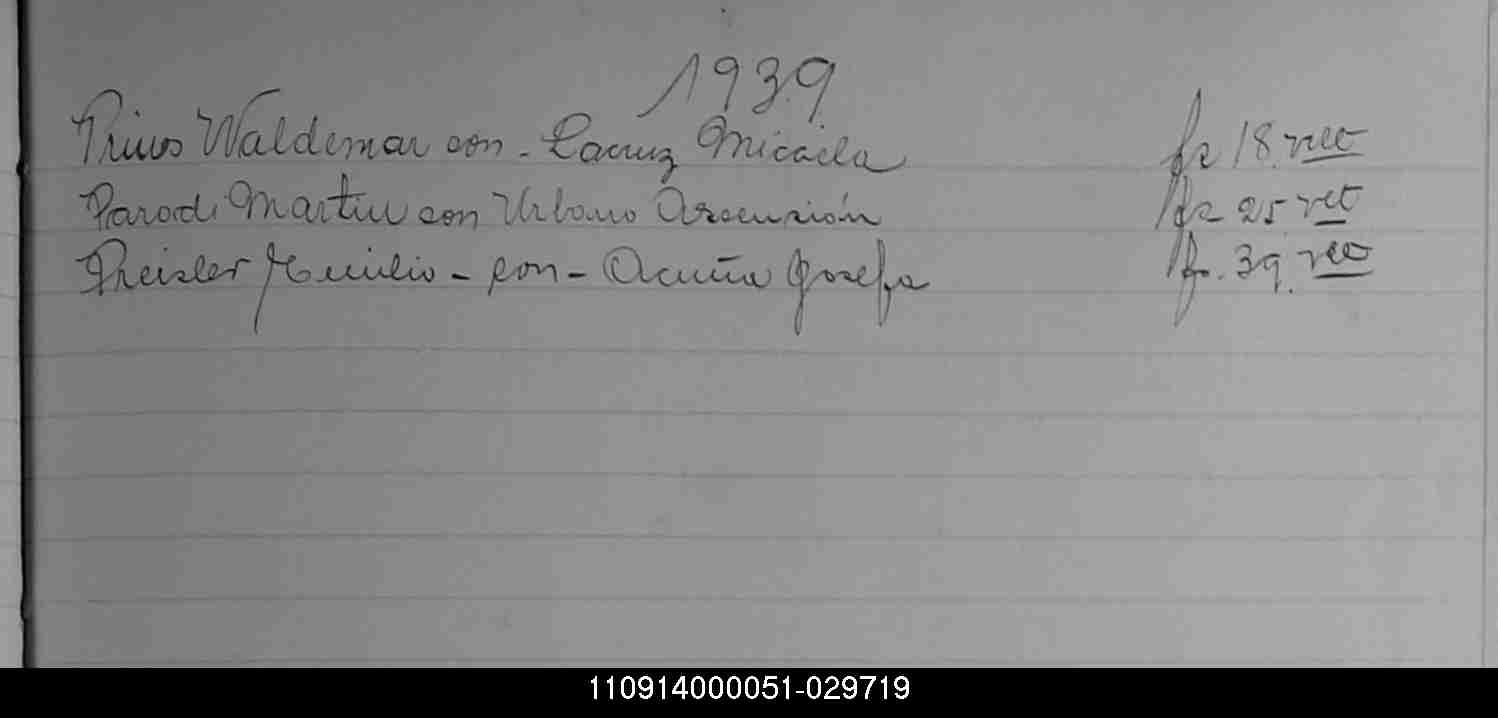 1939
Prius Waldemar con - Lacruz Micaela fs 18. vto
Parodi Martin con Urbano Ascensión fs 25 vto
Preisler Emilio - con - Acuña Josefa fs. 39. vto
110914000051-029719